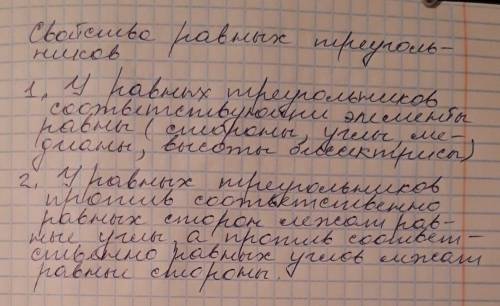 Свойство равных треуголь-
ников
1. У равных треугольников
соответствующии элементы
равны (стороны, углы, ме-
дианы, высоты биссектрисы)
2. У равных треугольников
против соответственно
равных сторон лежат рав-
ные углы, а против соответ-
ственно равных углов лежат
равные стороны.